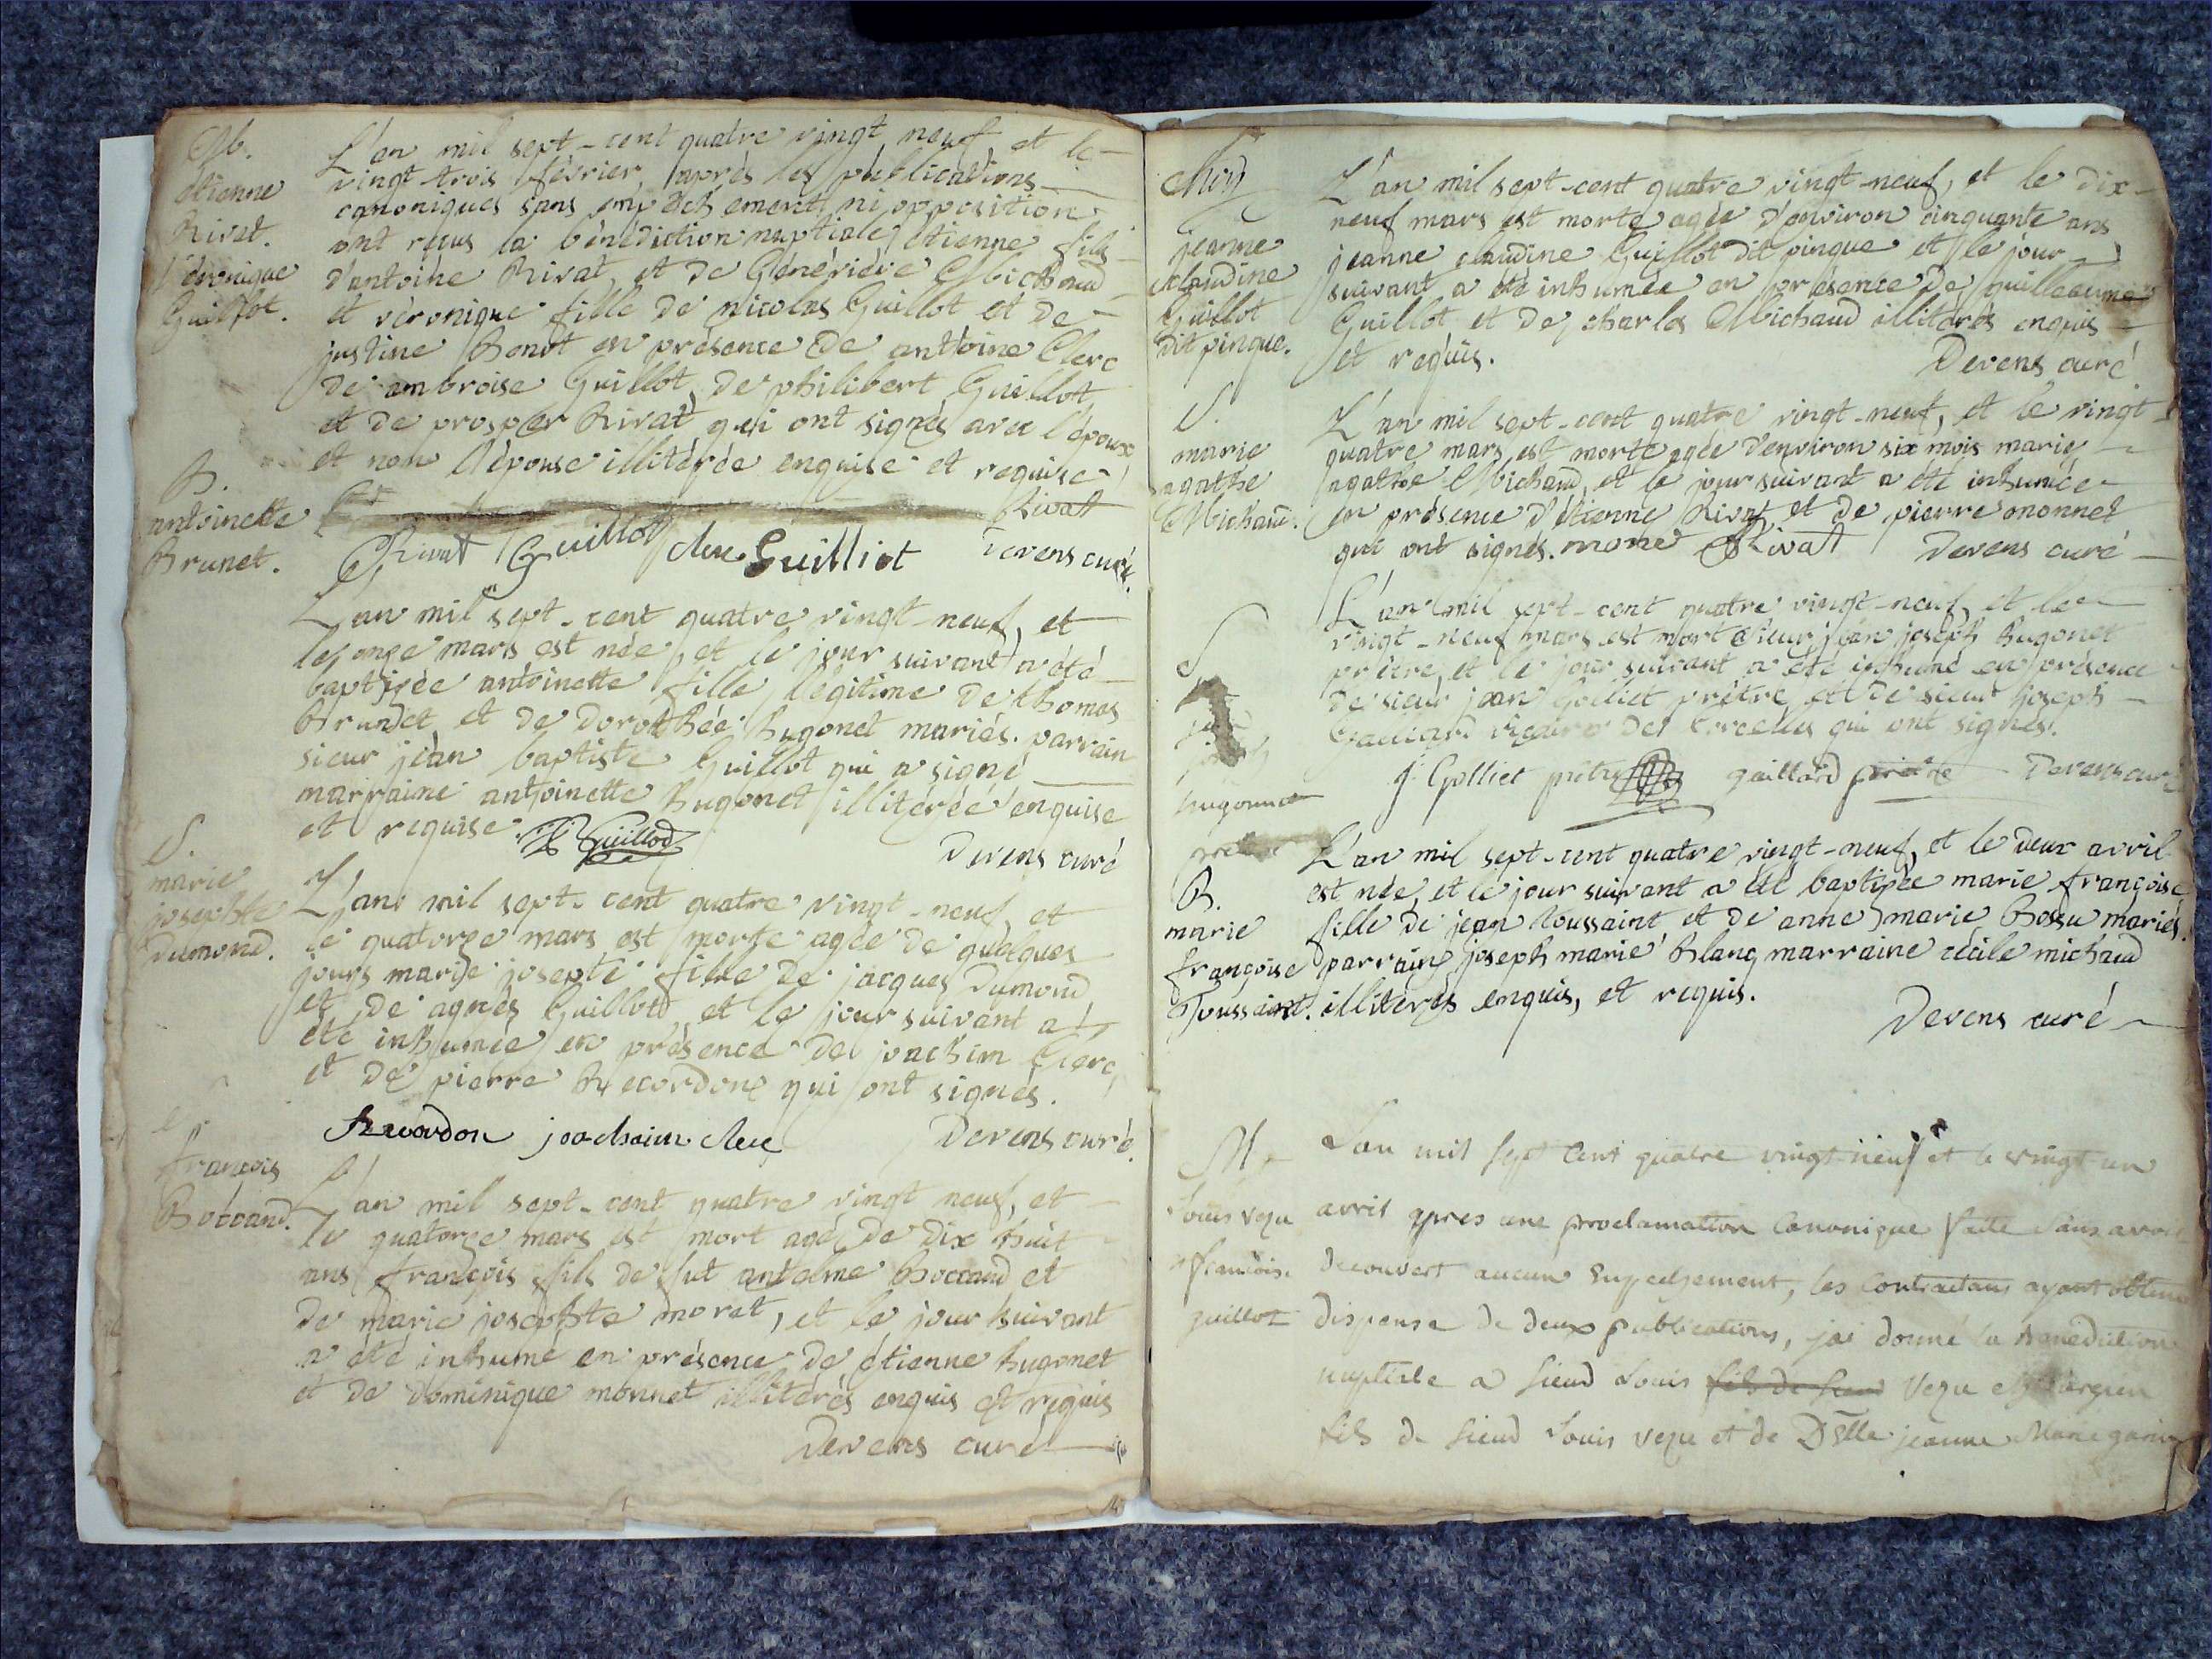 M.
étienne
Rivat.
véronique
Guillot.
L'an mil sept-cent quatre vingt neuf, et le
vingt trois février, après les publications
canoniques sans empêchement ni opposition
ont reçus la bénédiction nuptiale étienne fils
d'antoine Rivat, et de Généviève Michaud
et véronique fille de nicolas Guillot et de
justine Benot en présence de antoine Clerc
de ambroise Guillot, de philibert Guillot
et de prosper Rivat qui ont signés avec l'époux
et non l'épouse illitérée enquise et requise
Rivat
Rivat Guillot clerc Guilliot Devens curé.
B.
antoinette
Brunet.
L'an mil sept-cent quatre vingt-neuf, et
le onze mars est née, et le jour suivant a été
baptisée antoinette fille légitime de thomas
Brunet et de Dorothée hugonet mariés. parrain
sieur jean baptiste Guillot qui a signé
marraine antoinette hugonet illitérée enquise
et requise. Guillod
Devens curé
S.
marie
josephte
Dumond.
L'an mil sept-cent quatre vingt-neuf, et
le quatorze mars est morte agée de quelques
jours marie josepte fille de jacques Dumond
et de agnés Guillot, et le jour suivant a
été inhumée en présence de joachim Clerc,
et de pierre Recordon qui ont signés.
Recordon joachaim clerc Devens curé.
françois
Boccand.
L'an mil sept-cent quatre vingt neuf, et
le quatorze mars est mort agé de dix huit
ans françois fils de fut antelme Boccand et
de marie josephte moret, et le jour suivant
a été inhumé en présence de étienne hugonet
et de Dominique monnet illitérés enquis et requis
Devens curé
jeanne
claudine
Guillot
dit pinque.
L'an mil sept-cent quatre vingt-neuf, et le dix-
neuf mars est morte agée d'environ cinquante ans
jeanne claudine Guillot dit pinque et le jour
suivant a été inhumée en présence de guilleaume
Guillot et de charles Michaud illitérés enquis
et requis.
Devens curé
S.
marie
agathe
Michaud.
L'an mil sept-cent quatre vingt-neuf, et le vingt-
quatre mars est morte agée d'environ six mois marie
agathe Michaud, et le jour suivant a été inhumée
en présence d'étienne Rivat, et de pierre monnet
qui ont signés. mone Rivat Devens curé
S
hugonnet
prêtre
L'an mil sept-cent quatre vingt-neuf, et le
vingt-neuf mars est mort sieur jean joseph hugonet
prêtre, et le jour suivant a été inhumé en présence
de sieur jean Golliet prêtre, et de sieur joseph
Gaillard vicaire de Corcelles qui ont signés.
j: Golliet prêtre gaillard prêtre Devens curé
B.
marie
françoise
Toussaint.
L'an mil sept-cent quatre vingt-neuf, et le deux avril
est née, et le jour suivant a été baptisée marie françoise
fille de jean toussaint et de anne marie Bossu mariés.
parrain joseph marie Blanq marraine cécile michaud
illitérés enquis, et requis.
Devens curé
M
Louis vezu
françoise
guillot
L'an mil sept cent quatre vingt neuf et le vingt un
avril apres une proclamation Canonique faite sans avoir
decouvert aucun empechement, les Contractans ayant obtenu
dispense de deux publications, jai donné la benediction
nuptiale a sieur Louis fils de sieur vezu chirurgien
fils de sieur Louis vezu et de Dlle jeanne Marie garin